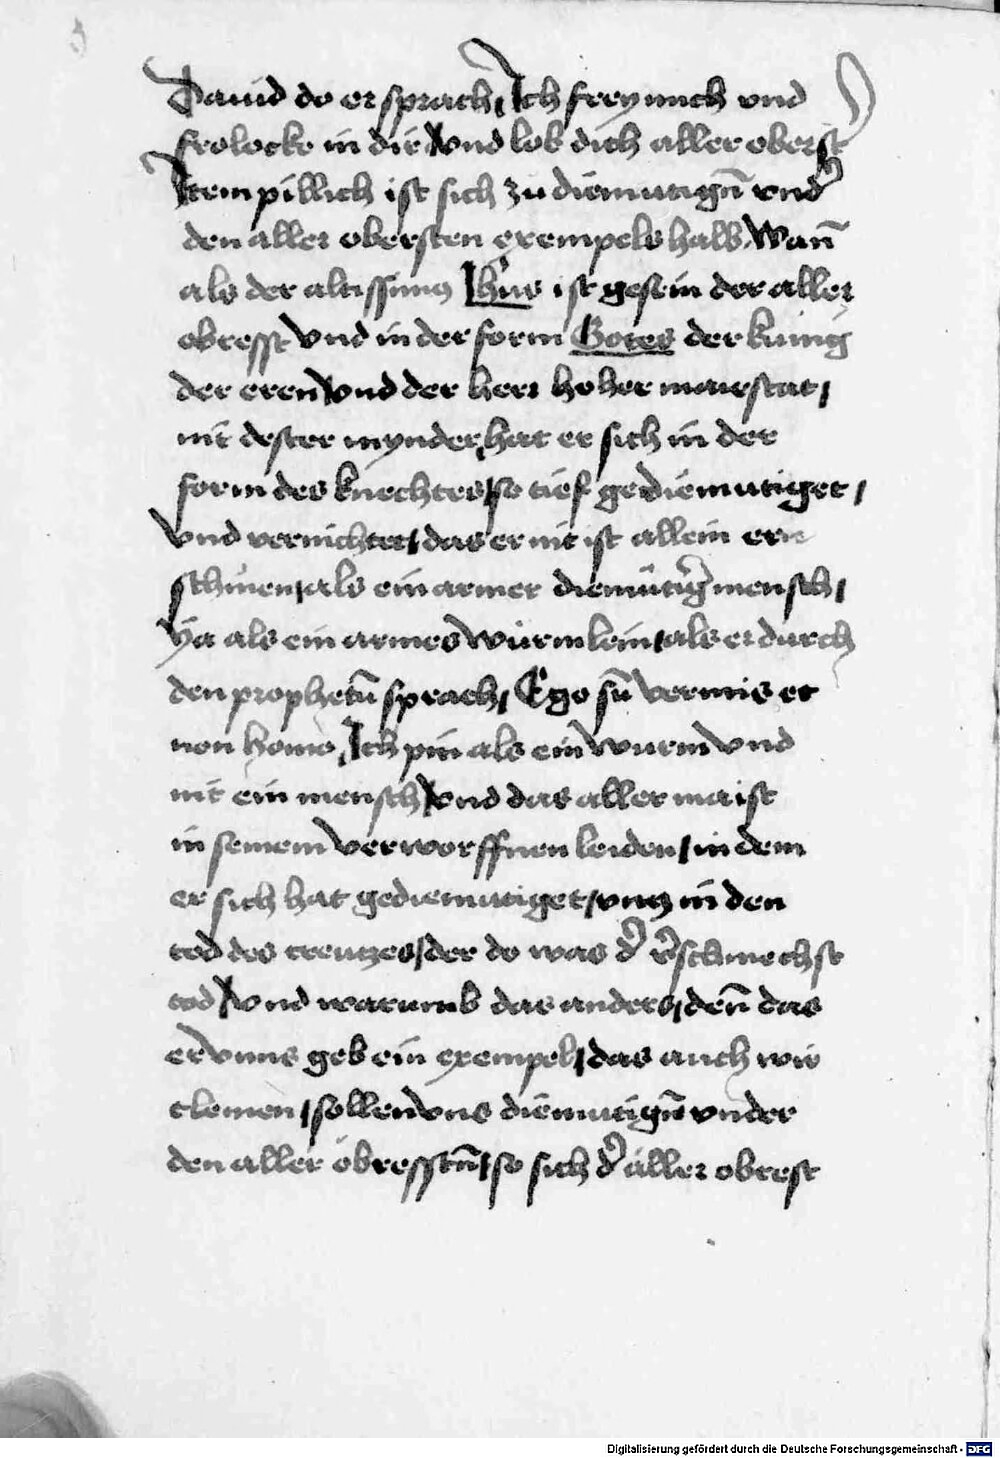 Dauid do er sprach, Ich frey mich vnd
frolocke in dir vnd lob dich aller oberst
Item pillich ist sich zu diemutigñ vnd̉
den aller obersten exempels halb, Wañ
als der altissimus Jhus ist gesein der aller
obresst Vnd in der form Gotes der kunig
der eren Vnd der herr hoher maiestat,
nit dester mynder, hat er sich in der
form des knechtes, so tief gediemutiget,
Vnd vernichtet, das er nit ist allein ern
schinen, als ein armer diemütig̉ mensch,
ya als ein armes würmlein, als er durch
den prophetñ sprach, Ego sũ vermis et
non homo, Ich pin als ein wurm vnd
nit ein mensch, Vnd das aller maist
in seinem verworffnen leiden, in dem
er sich hat gediemutiget, vntz in den
tod des creutzes, der do was d̉ v̉schmechst
tod, Vnd warumb das anders, deñ das
er vnns geb ein exempel, das auch wir
clemen, sollen vns diemutigñ vnder
den aller obresstñ, so sich d̉ aller obrest
Digitalisierung gefördert durch die Deutsche Forschungsgemeinschaft - DFG